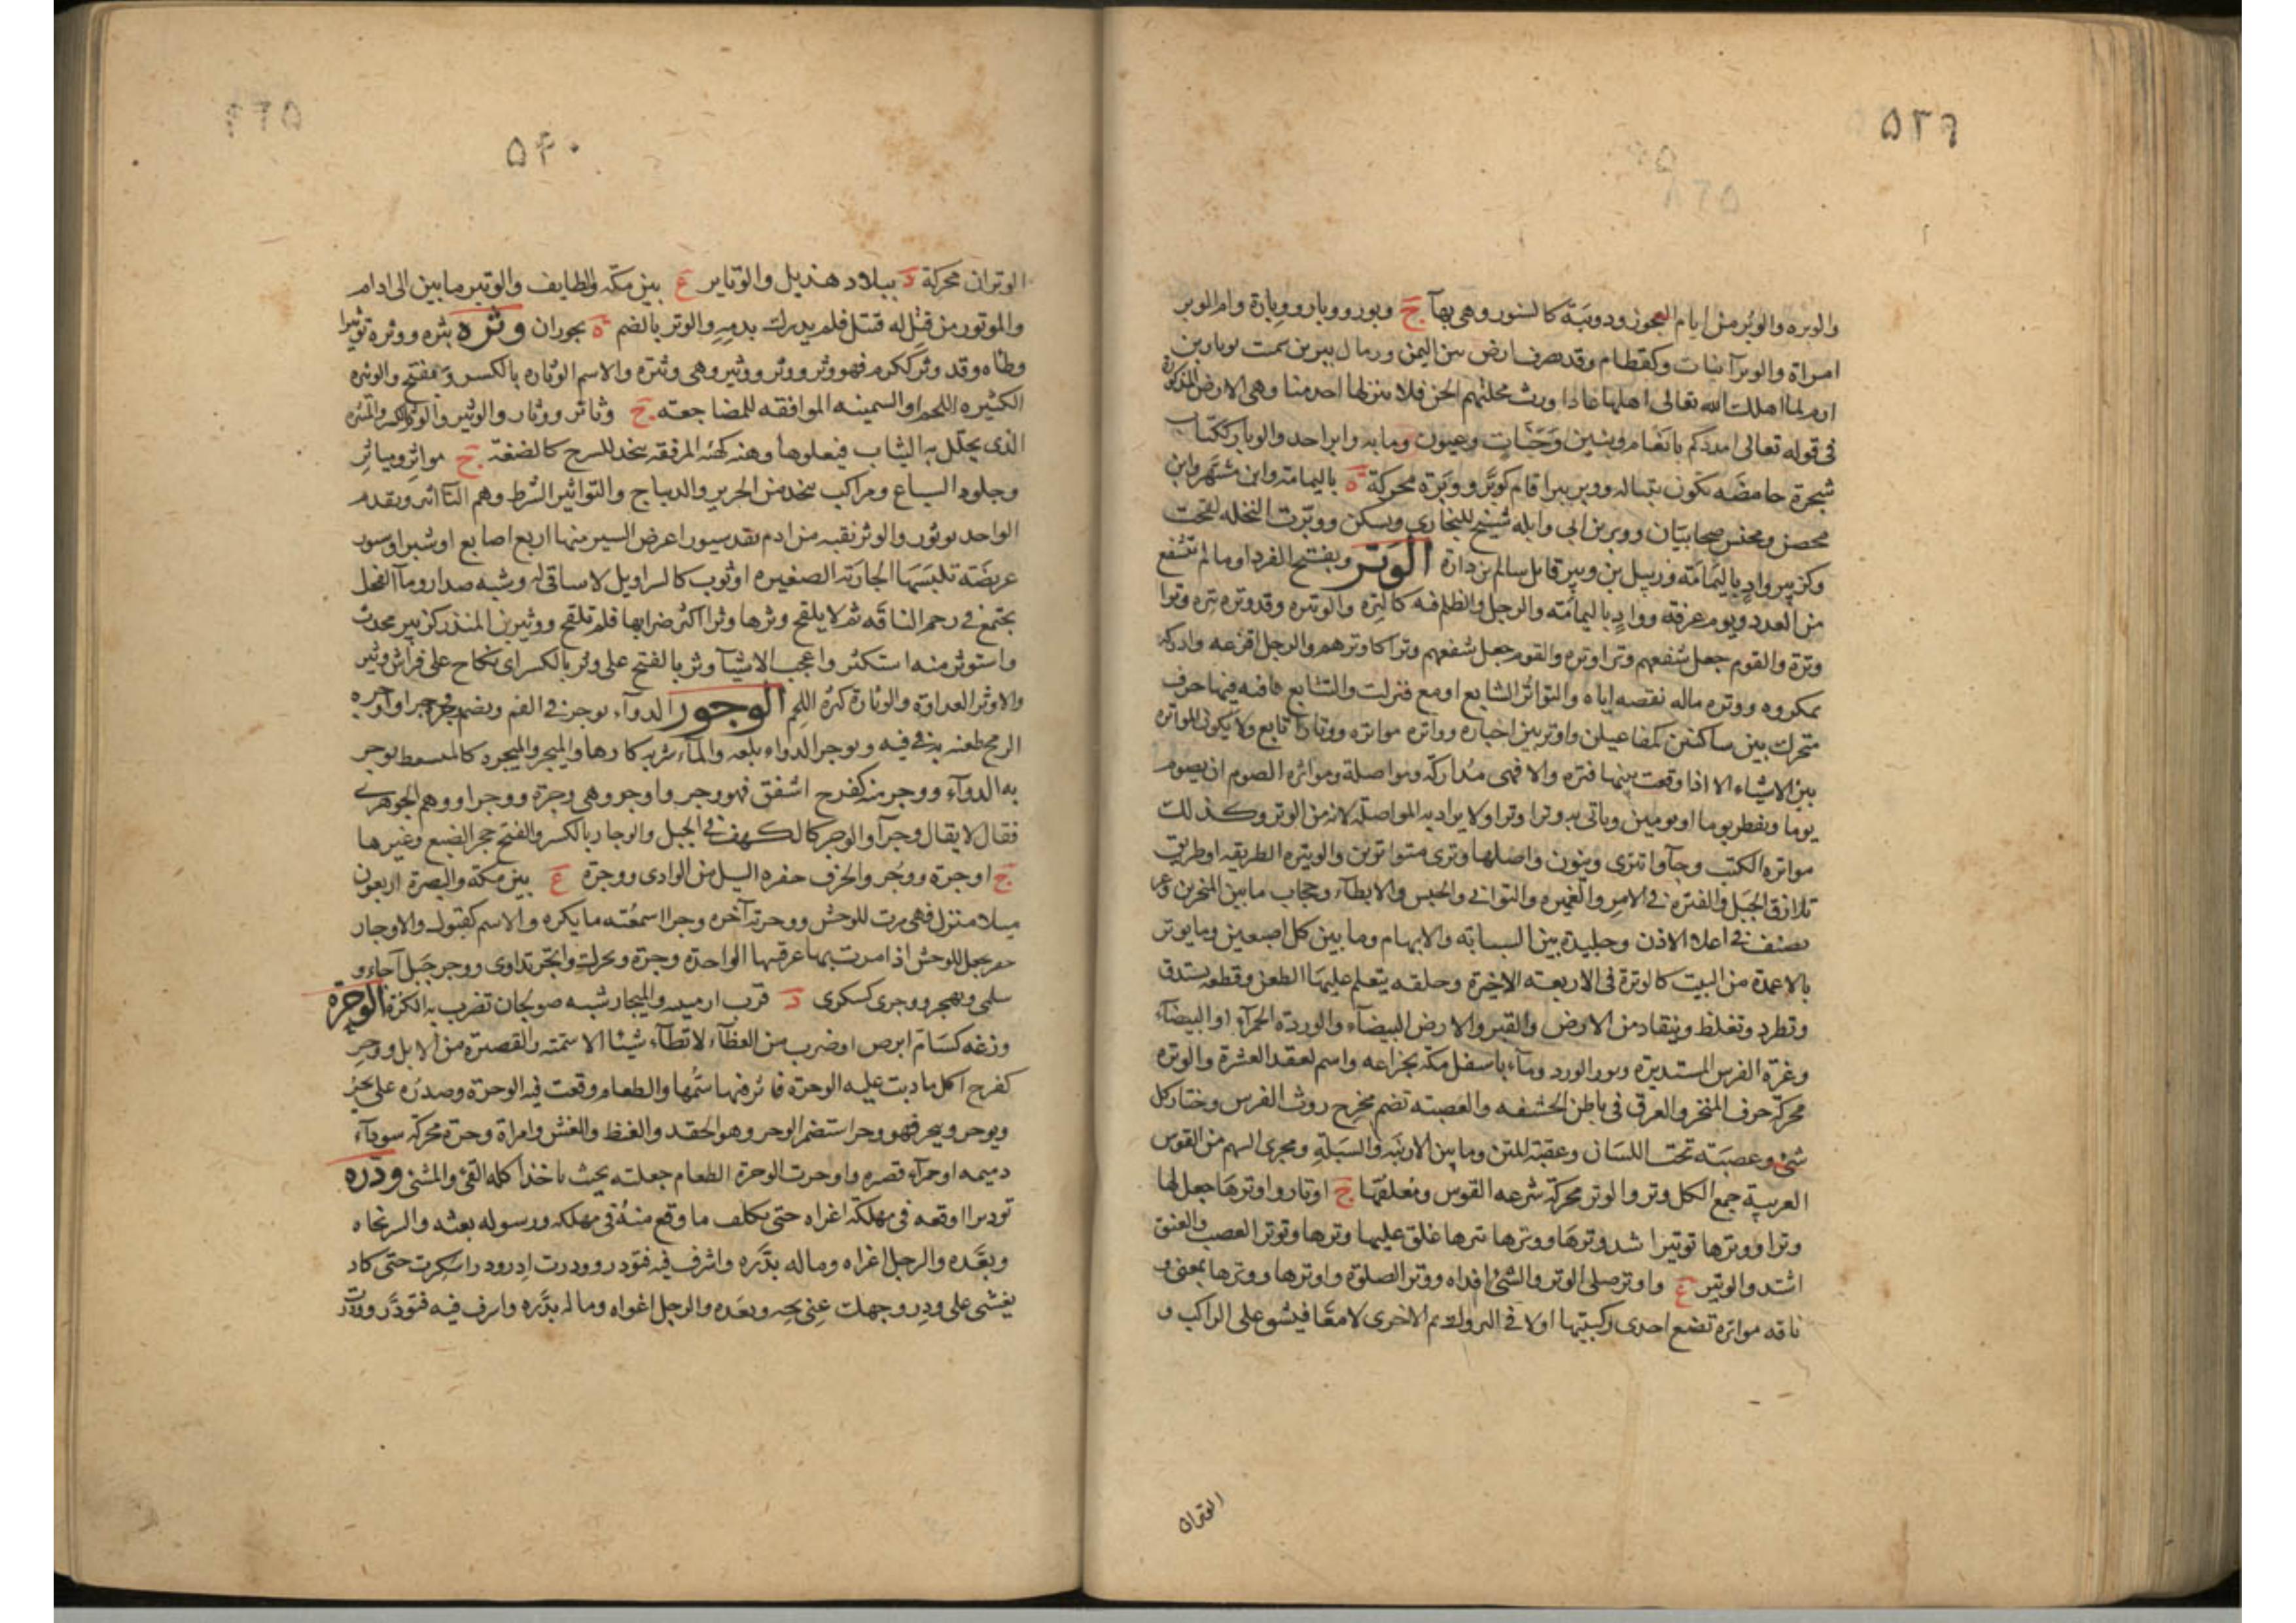 ٥٣٩
والوبره والوبر من ايام العجوز ودويبة كالسنور وهي بهآ ج وبور ووبار ووبارة وام الوبر
امراة والوبرآ نبات وكقطام وقد يصرف ارض بين اليمن ورمال يبرين سمت بوبار بن
ارم لما اهلك الله تعالى اهلها عادا ورث محلتهم الجن فلا ينزلها احد منا وهي الارض المذكورة
في قوله تعالى امدكم بانعام وبنين وجنات وعيون وما به وابر احد والوبار ككتاب
شجرة حامضه تكون بتباله ووبر يبر اقام كوبر ووبرة محركة ة باليمامة وابن مشهر وابن
محصن ومحنس صحابيان ووبر بن ابي وابله شيخ للبخاري ويسكن ووبرت النخله لقحت
وكزبير واد باليمامة وزبيل بن وبير قاتل سالم بن دارة الوتر ويفتح الفرد او ما لم تشفع
من العدد ويوم عرفه وواد باليمامه والرجل والظلم فيه كالتره والوتيره وقد وتره يتره وترا
وترة والقوم جعل شفعهم وترا اوتره والقوم جعل شفعهم وترا كاوترهم والرجل افزعه وادركه
بمكروه ووتره ماله نقصه اياه والتواتر التتابع او مع فترات والتتابع قافيه فيها حرف
متحرك بين ساكنين كمفاعيلن واوتر بين اخباره وواتره مواتره ووتارا تابع ولا يكون المواتره
بين الاشياء الا اذا وقعت بينها فتره والا فهى مداركه ومواصلة ومواتره الصوم ان يصوم
يوما ويفطر يوما او يومين وياتى به وترا وترا ولا يراد به المواصلة لانه من الوتر وكذلك
مواتره الكتب وجآوا تترى وينون واصلها وترى متواترين والويتره الطريقه او طريق
تلازق الجبل والفتره في الامر والغميره والتوانے والحبس والابطآء وحجاب ما بين المنخرين وغر
يصنف في اعلا الاذن وجليدة بين السبابه والابهام وما بين كل اصبعين وما يوتر
بالاعمدة من البيت كالوترة فى الاربعه الاخيرة وحلقه يتعلم عليها الطعن وقطعه يستدق
وتطرد وتغلظ وينقاد من الارض والقبر والارض البيضآء والوردة الحمرآء او البيضآء
وغرة الفرس المستديرة ونور الورد ومآء باسفل مكه بخزاعه واسم لعقد العشرة والوتره
محركة حرف المنخر والعرق فى باطن الحشفه والعصبه تضم مخرج روث الفرس وختار كل
شئ وعصبة تحت اللسان وعقبة المتن وما بين الارنبه والسبلة ومجرى السهم من القوس
العربية جمع الكل وتر والوتر محركة شرعه القوس ومعلقها ج اوتار واوترها جعل لها
وترا ووترها توتيرا شد وترها ووترها يترها علق عليها وترها وتوتر العصب والعنق
اشتد والوتير ع واوتر صلى الوتر والشئ افذاه ووتر الصلوة واوترها ووترها بمعنى و
ناقه مواتره تضع احدى ركبتيها اولا في البروك ثم الاخرى لا معا فيشو على الراكب و
الوتران
٥٤٠
الوتران محركة د ببلاد هذيل والوتاير ع بين مكه والطايف والوتير ما بين الى ادام
والموتور من قتل له قتيل فلم يدرك بدمه والوتر بالضم ة بحوران وثره يثره ووثره توثيرا
وطاه وقد وثر ككرم فهو وثر ووثر ووثير وهى وثيرة والاسم الوثاره بالكسر ويفتح والوثيره
الكثيره اللحم او السمينه الموافقه للمضاجعه ج وثائر ووثار والوثير والوثر بالكسر والميثره
الذى يجلل به الثياب فيعلوها وهنه كهئه المرفقه يتخذ للسرج كالضغفة ج مواثر ومياثر
وجلود السباع ومراكب يتخذ من الحرير والديباج والتواثير الشرط وهم التاثير وتقدم
الواحد توثور والوثر نقبه من ادم تقد سيورا عرض السير منها اربع اصابع او شبر او سور
عريضة تلبسها الجارية الصغيره او ثوب كالسراويل لا ساقى له وشبه صدار ومآ الفحل
يجتمع في رحم الناقه ثم لا يلقح وثرها وثرا اكثر ضرابها فلم تلقح ووثير بن المنذر كزبير محدث
واستوثر منه استكثر واعجب الاشيآ وثر بالفتح على وثر بالكسر اى نكاح على فراش وثير
والاوثر العداوة والوثارة كثرة اللحم الوجور الدوآء يوجر في الفم ويضم وجر وجرا واوجره
الرمح طعنه به في فيه وتوجر الدواء بلعه والمآء شربه كارها والميجر والميجرة كالمسعط يوجر
به الدوآء ووجر منه كفرح اشفق فهو وجر واوجر وهى وجرة ووجرا ووهم الجوهرے
فقال لا يقال وجرآ والوجر كالكهف في الجبل والوجار بالكسر والفتح جحر الضبع وغيرها
ج اوجرة ووجر والجرف حفره السيل من الوادى ووجرة ع بين مكة والبصرة اربعون
ميلا منزل فهى مرت للوحش ووجرته آجره وجرا اسمعته ما يكره والاسم كقبول والاوجار
حفر يجعل للوحش اذا مرت بها عرقبها الواحدة وجرة ويحرك واتجر تداوى ووجر جبل آجاء و
سلمى وبهجر ووجرى كسكرى د قرب ارمينيه والميجار شبه صولجان تضرب به الكرة الوحرة
وزغه كسام ابرص او ضرب من العظآء لا تطآء شيئا الا سمته والقصيرة من الابل ووحر
كفرح اكل ما دبت عليه الوحرة فاثر فيها سمها والطعام وقعت فيه الوحرة وصدره على يحر
ويوحر وييحر فهو وحر استضمر الوحر وهو الحقد والغيظ والغش وامراة وحرة محركة سودآء
دميمه او حمرآء قصيره واوحرت الوحرة الطعام جعلته بحيث ياخذ اكله القئ والمشى ودره
توديرا اوقعه فى مهلكة اغراه حتى يكلف ما وقع منه فى مهلكه ورسوله بعثه والسر نجاه
وبعده والرجل اغراه وماله بذره واشرف فيه فتودر وودرت ادر ودرا سكرت حتى كاد
يغشى على ودر وجهك عنى نحه وبعده والرجل اغواه وماله بذره واسرف فيه فتودر وودرت